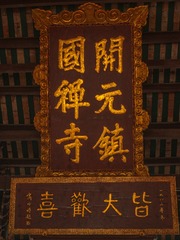 開元鎮
國禪寺
皆大歡喜